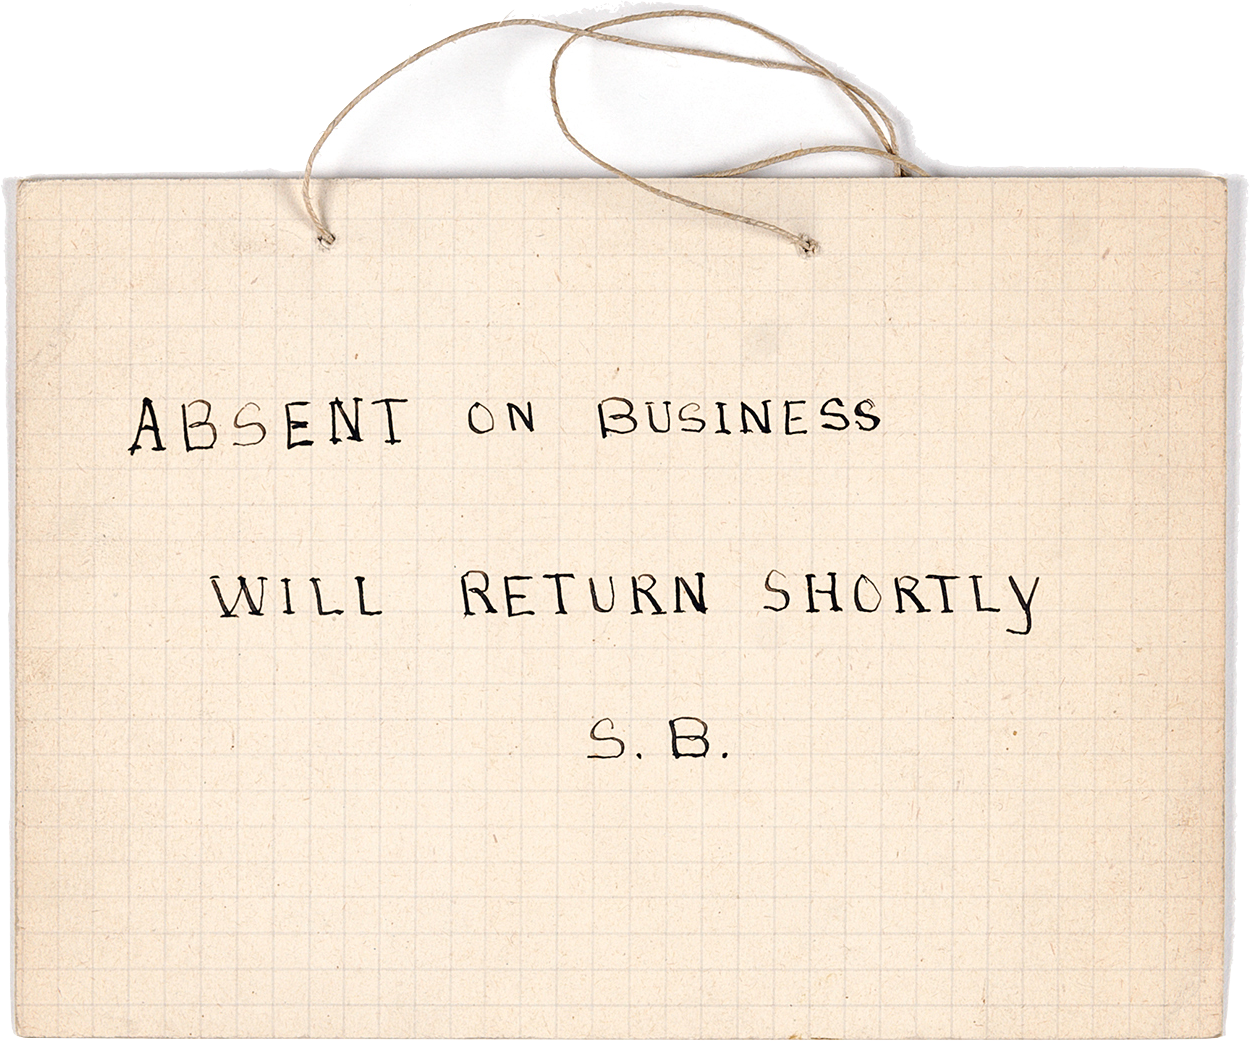 ABSENT ON BUSINESS
WILL RETURN SHORTLY
S. B.